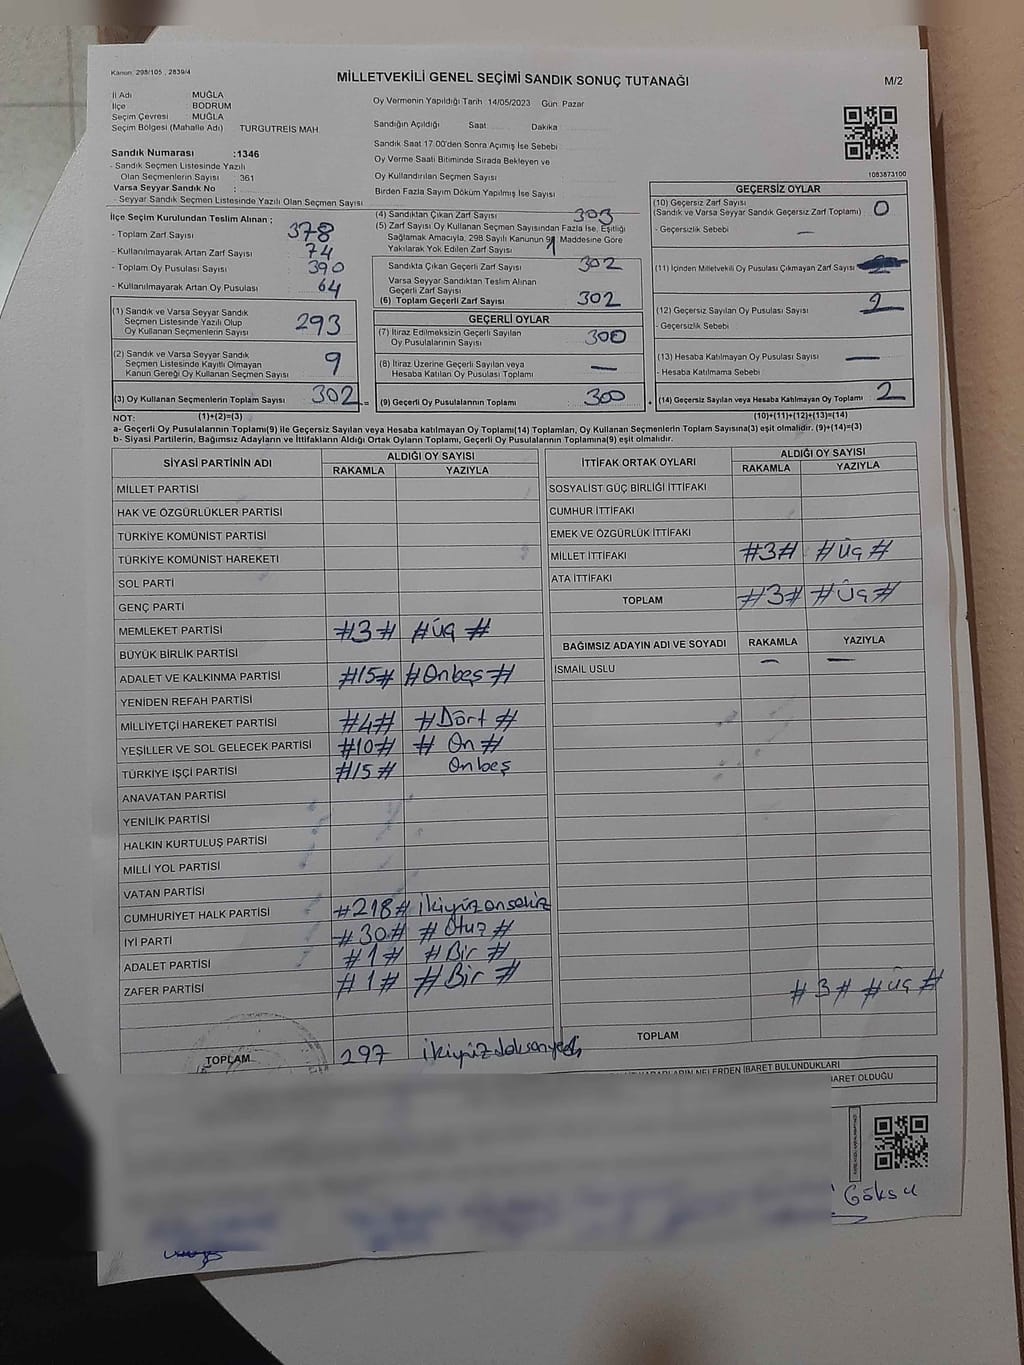 Kanun 298/105 , 2839/4
MİLLETVEKİLİ GENEL SEÇİMİ SANDIK SONUÇ TUTANAĞI
M/2
İl Adı MUĞLA
İlçe BODRUM
Seçim Çevresi MUĞLA
Seçim Bölgesi (Mahalle Adı) TURGUTREİS MAH.
Sandık Numarası :1346
- Sandık Seçmen Listesinde Yazılı
Olan Seçmenlerin Sayısı 361
Varsa Seyyar Sandık No :
- Seyyar Sandık Seçmen Listesinde Yazılı Olan Seçmen Sayısı
Oy Vermenin Yapıldığı Tarih 14/05/2023 Gün Pazar
Sandığın Açıldığı Saat Dakika
Sandık Saat 17.00'den Sonra Açımış İse Sebebi
Oy Verme Saati Bitiminde Sırada Bekleyen ve
Oy Kullandırılan Seçmen Sayısı
Birden Fazla Sayım Döküm Yapılmış İse Sayısı
1083873100
İlçe Seçim Kurulundan Teslim Alınan ;
- Toplam Zarf Sayısı 378
- Kullanılmayarak Artan Zarf Sayısı 74
- Toplam Oy Pusulası Sayısı 390
- Kullanılmayarak Artan Oy Pusulası 64
(1) Sandık ve Varsa Seyyar Sandık
Seçmen Listesinde Yazılı Olup
Oy Kullanan Seçmenlerin Sayısı 293
(2) Sandık ve Varsa Seyyar Sandık
Seçmen Listesinde Kayıtlı Olmayan
Kanun Gereği Oy Kullanan Seçmen Sayısı 9
(3) Oy Kullanan Seçmenlerin Toplam Sayısı 302 =
(4) Sandıktan Çıkan Zarf Sayısı 303
(5) Zarf Sayısı Oy Kullanan Seçmen Sayısından Fazla İse, Eşitliği
Sağlamak Amacıyla, 298 Sayılı Kanunun Maddesine Göre
Yakılarak Yok Edilen Zarf Sayısı 1
Sandıkta Çıkan Geçerli Zarf Sayısı 302
Varsa Seyyar Sandıktan Teslim Alınan
Geçerli Zarf Sayısı
(6) Toplam Geçerli Zarf Sayısı 302
GEÇERLİ OYLAR
(7) İtiraz Edilmeksizin Geçerli Sayılan
Oy Pusulalarının Sayısı 300
(8) İtiraz Üzerine Geçerli Sayılan veya
Hesaba Katılan Oy Pusulası Toplamı —
(9) Geçerli Oy Pusulalarının Toplamı 300 +
GEÇERSİZ OYLAR
(10) Geçersiz Zarf Sayısı
(Sandık ve Varsa Seyyar Sandık Geçersiz Zarf Toplamı) 0
- Geçersizlik Sebebi —
(11) İçinden Milletvekili Oy Pusulası Çıkmayan Zarf Sayısı
(12) Geçersiz Sayılan Oy Pusulası Sayısı 2
- Geçersizlik Sebebi
(13) Hesaba Katılmayan Oy Pusulası Sayısı —
- Hesaba Katılmama Sebebi
(14) Geçersiz Sayılan veya Hesaba Katılmayan Oy Toplamı 2
NOT: (1)+(2)=(3)
(10)+(11)+(12)+(13)=(14)
a- Geçerli Oy Pusulalarının Toplamı(9) ile Geçersiz Sayılan veya Hesaba Katılmayan Oy Toplamı(14) Toplamları, Oy Kullanan Seçmenlerin Toplam Sayısına(3) eşit olmalıdır. (9)+(14)=(3)
b- Siyasi Partilerin, Bağımsız Adayların ve İttifakların Aldığı Ortak Oyların Toplamı, Geçerli Oy Pusulalarının Toplamına(9) eşit olmalıdır.
SİYASİ PARTİNİN ADI ALDIĞI OY SAYISI
RAKAMLA YAZIYLA
MİLLET PARTİSİ
HAK VE ÖZGÜRLÜKLER PARTİSİ
TÜRKİYE KOMÜNİST PARTİSİ
TÜRKİYE KOMÜNİST HAREKETİ
SOL PARTİ
GENÇ PARTİ
MEMLEKET PARTİSİ #3# #üç#
BÜYÜK BİRLİK PARTİSİ
ADALET VE KALKINMA PARTİSİ #15# #Onbeş#
YENİDEN REFAH PARTİSİ
MİLLİYETÇİ HAREKET PARTİSİ #4# #Dört#
YEŞİLLER VE SOL GELECEK PARTİSİ #10# # On #
TÜRKİYE İŞÇİ PARTİSİ #15# Onbeş
ANAVATAN PARTİSİ
YENİLİK PARTİSİ
HALKIN KURTULUŞ PARTİSİ
MİLLİ YOL PARTİSİ
VATAN PARTİSİ
CUMHURİYET HALK PARTİSİ #218# ikiyüzonsekiz
İYİ PARTİ #30# #Otuz#
ADALET PARTİSİ #1# #Bir#
ZAFER PARTİSİ #1# #Bir#
TOPLAM 297 ikiyüzdoksanyedi
İTTİFAK ORTAK OYLARI ALDIĞI OY SAYISI
RAKAMLA YAZIYLA
SOSYALİST GÜÇ BİRLİĞİ İTTİFAKI
CUMHUR İTTİFAKI
EMEK VE ÖZGÜRLÜK İTTİFAKI
MİLLET İTTİFAKI #3# #üç#
ATA İTTİFAKI
TOPLAM #3# #üç#
BAĞIMSIZ ADAYIN ADI VE SOYADI RAKAMLA YAZIYLA
İSMAİL USLU — —
#3# #üç#
TOPLAM
KARARLARIN NELERDEN İBARET BULUNDUKLARI
İBARET OLDUĞU
Göksu